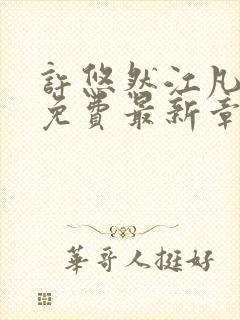 許悠然江凡
免費最新章
華哥人挺好